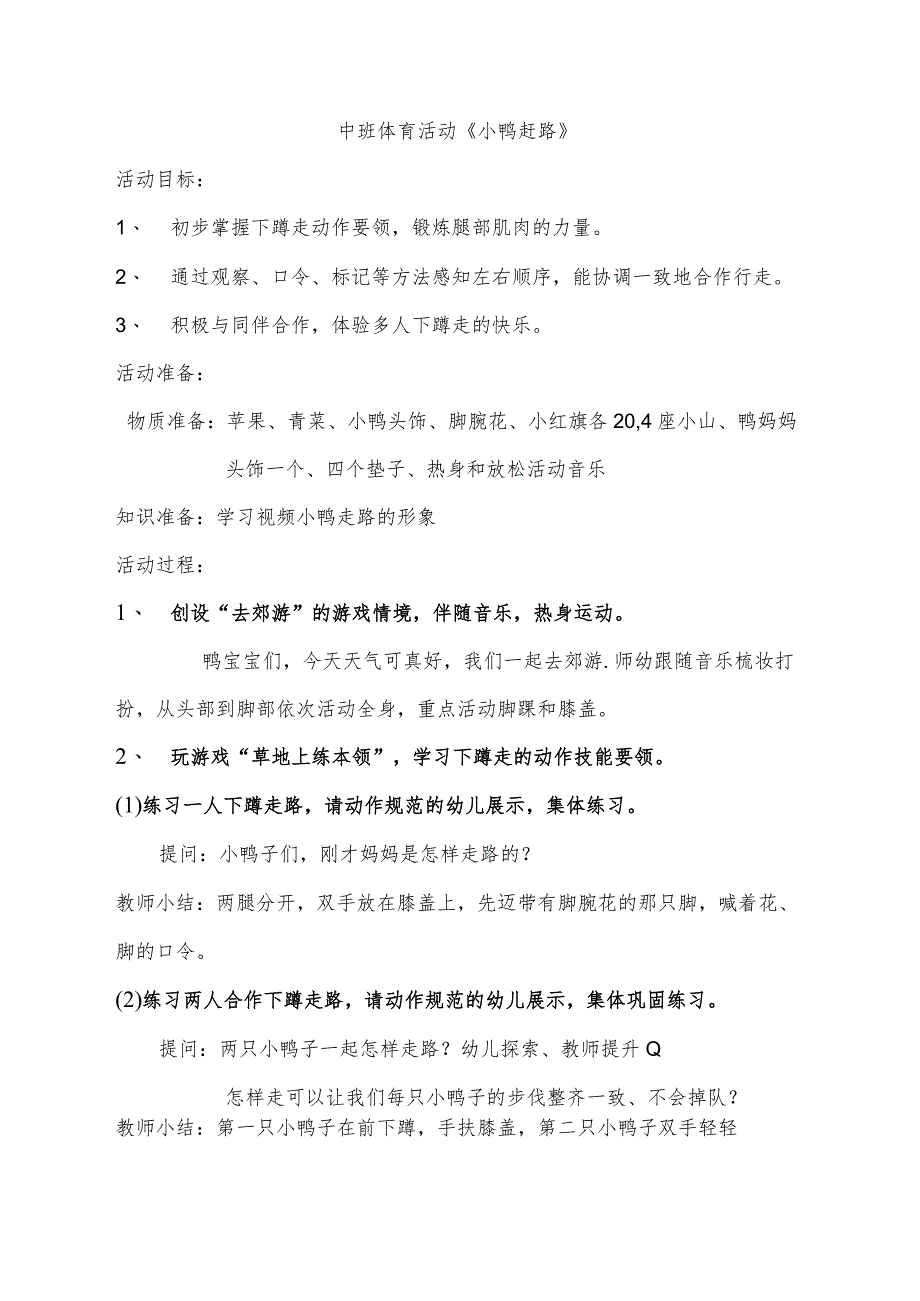 中班体育活动《小鸭赶路》
活动目标：
1、 初步掌握下蹲走动作要领，锻炼腿部肌肉的力量。
2、 通过观察、口令、标记等方法感知左右顺序，能协调一致地合作行走。
3、 积极与同伴合作，体验多人下蹲走的快乐。
活动准备：
物质准备：苹果、青菜、小鸭头饰、脚腕花、小红旗各 20,4 座小山、鸭妈妈
头饰一个、四个垫子、热身和放松活动音乐
知识准备：学习视频小鸭走路的形象
活动过程：
1、 创设“去郊游”的游戏情境，伴随音乐，热身运动。
鸭宝宝们，今天天气可真好，我们一起去郊游.师幼跟随音乐梳妆打
扮，从头部到脚部依次活动全身，重点活动脚踝和膝盖。
2、 玩游戏“草地上练本领”，学习下蹲走的动作技能要领。
(1)练习一人下蹲走路，请动作规范的幼儿展示，集体练习。
提问：小鸭子们，刚才妈妈是怎样走路的？
教师小结：两腿分开，双手放在膝盖上，先迈带有脚腕花的那只脚，喊着花、
脚的口令。
(2)练习两人合作下蹲走路，请动作规范的幼儿展示，集体巩固练习。
提问：两只小鸭子一起怎样走路？幼儿探索、教师提升 Q
怎样走可以让我们每只小鸭子的步伐整齐一致、不会掉队？
教师小结：第一只小鸭子在前下蹲，手扶膝盖，第二只小鸭子双手轻轻